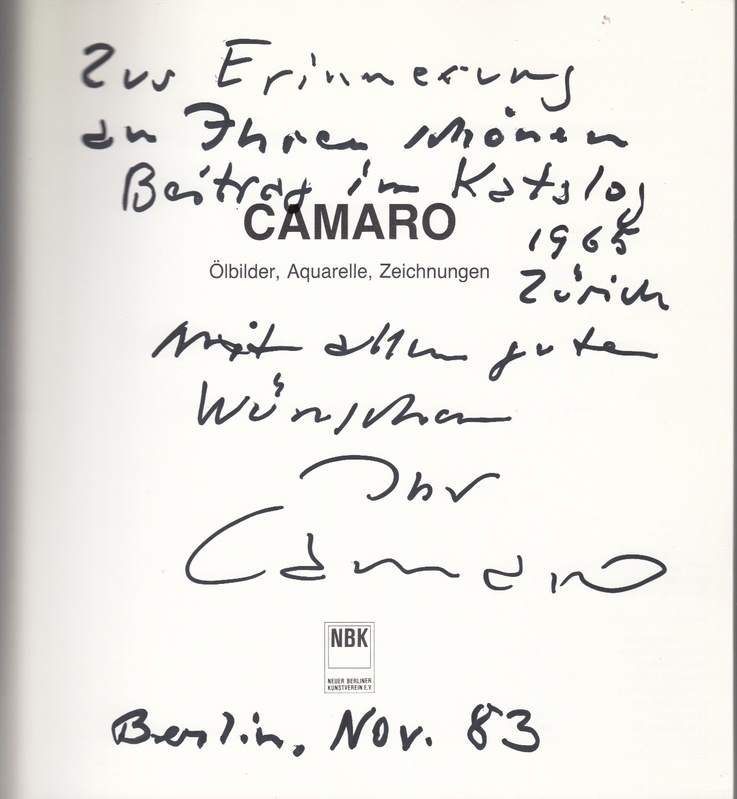 Zur Erinnerung
an Ihren schönen
Beitrag im Katalog
CAMARO
1965
Ölbilder, Aquarelle, Zeichnungen
Zürich
Mit allen guten
Wünschen
Ihr
Camaro
NBK
NEUER BERLINER
KUNSTVEREIN E.V.
Berlin, Nov. 83